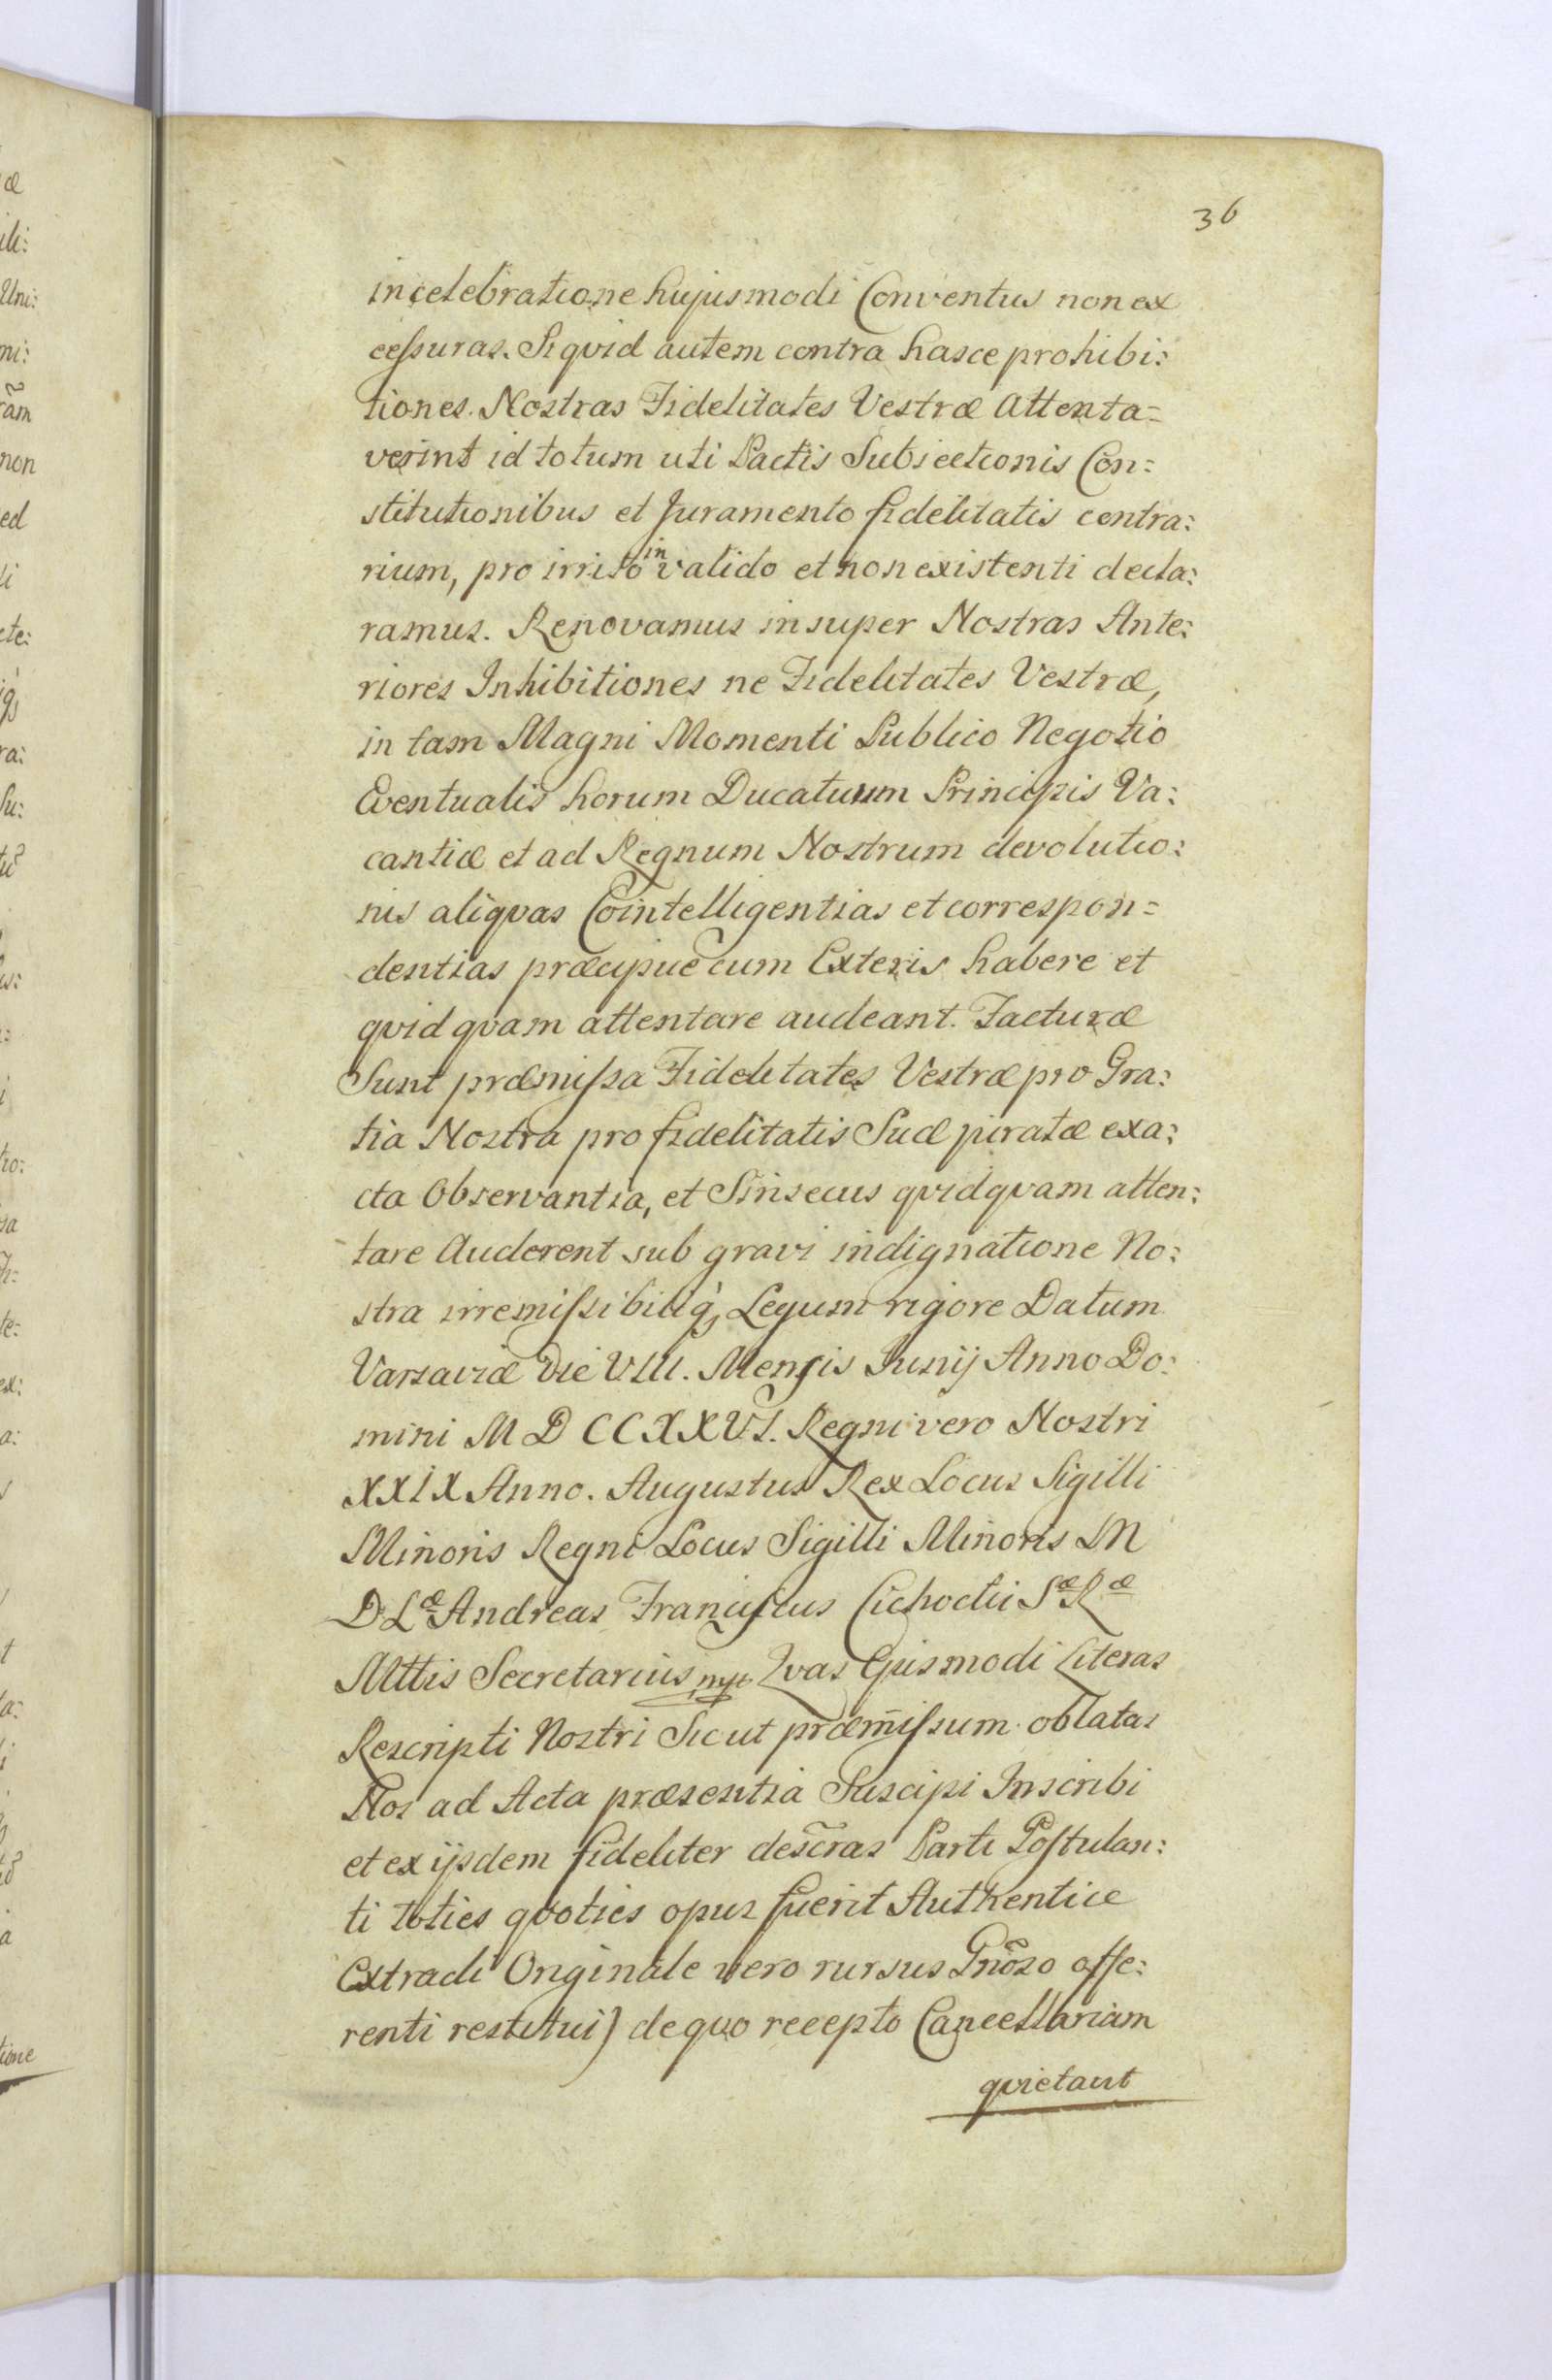 36
in celebratione hujusmodi Conventus non ex
cessuras. Si qvid autem contra hasce prohibi:
tiones Nostras Fidelitates Vestræ Attenta=
verint id totum uti Pactis Subiectionis Con:
stitutionibus et Juramento fidelitatis contra:
rium, pro irrito invalido et non existenti decla:
ramus. Renovamus insuper Nostras Ante:
riores Inhibitiones ne Fidelitates Vestræ,
in tam Magni Momenti Publico Negotio
Eventualis horum Ducatuum Principis Va:
cantiæ et ad Regnum Nostrum devolutio:
nis aliqvas Cointelligentias et correspon=
dentias præcipue cum Exteris habere et
qvid qvam attentare audeant. Facturæ
Sunt præmissa Fidelitates Vestræ pro Gra:
tia Nostra pro fidelitatis Suæ juratæ exa:
cta Observantia, et Sinsecus qvidqvam atten:
tare Auderent sub gravi indignatione No:
stra irremissibiliq, Legum rigore Datum
Varsaviæ Die VIII. Mensis Junij Anno Do:
mini M D CCXXVI. Regni vero Nostri
XXIX Anno. Augustus Rex Locus Sigilli
Minoris Regni Locus Sigilli Minoris M
D Læ Andreas Franciscus Cichocki Sæ Ræ
Mttis Secretarius mpr Qvas Ejusmodi Literas
Rescripti Nostri Sicut præmissum oblatas
Nos ad Acta præsentia Suscipi Inscribi
et ex ijsdem fideliter descras Parti Postulan:
ti toties qvoties opus fuerit Authentice
Extradi Originale vero rursus Gnoso offe:
renti restitui) de quo recepto Cancellariam
qvietant